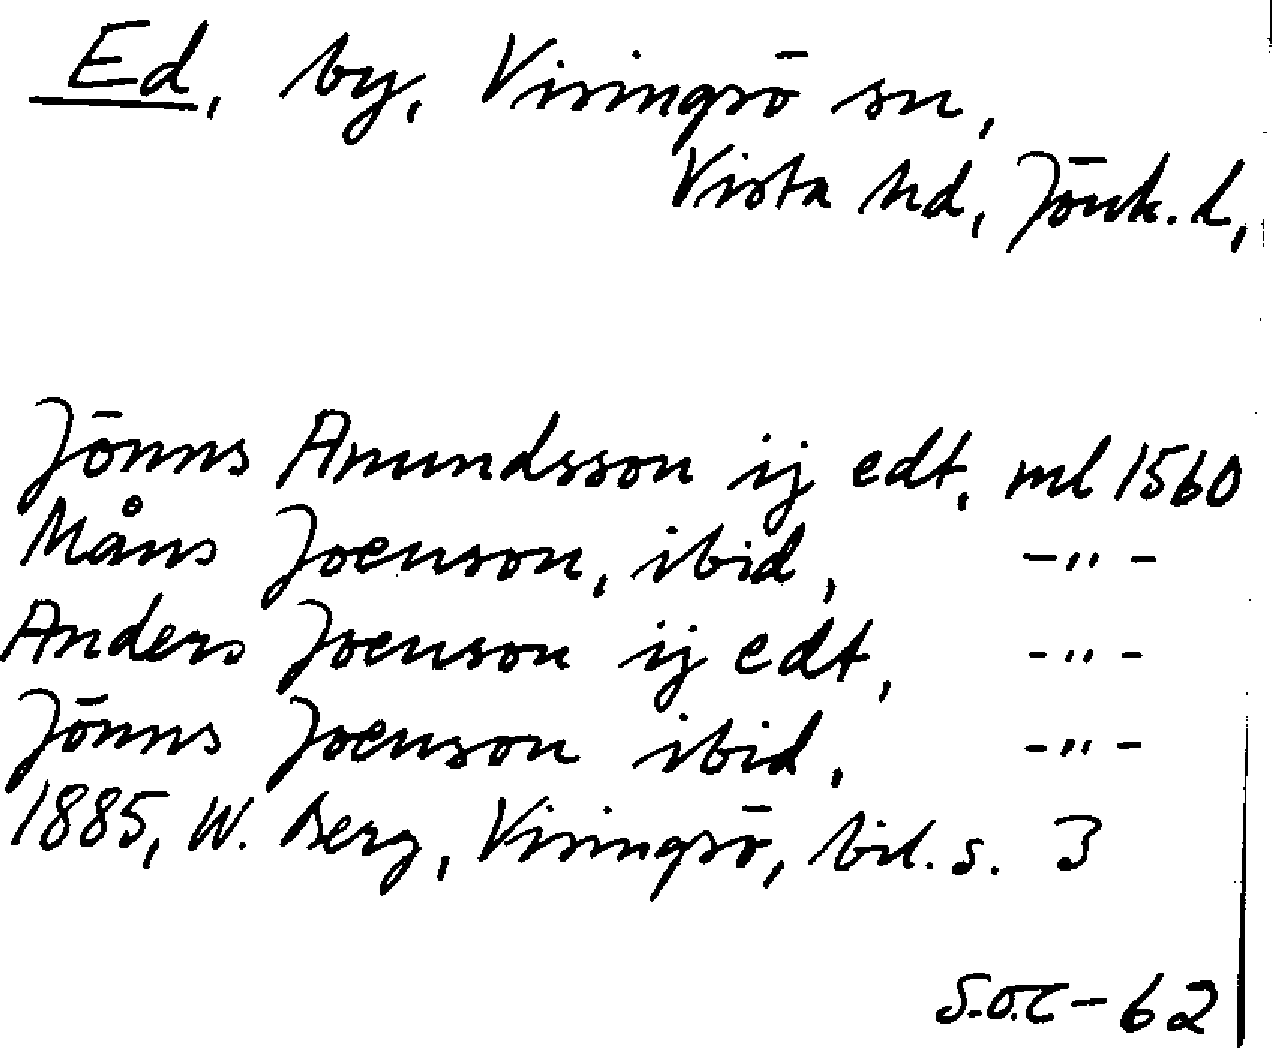 Ed, by, Visingsö sn,
Vista hd, Jönk. l,
Jönns Amundsson ij edt, ml 1560
Måns Joenson, ibid, -"-
Anders Joenson ij edt, -"-
Jönns Joenson ibid, -"-
1885, W. Berg, Visingsö, bil. s. 3
S.O.C-62